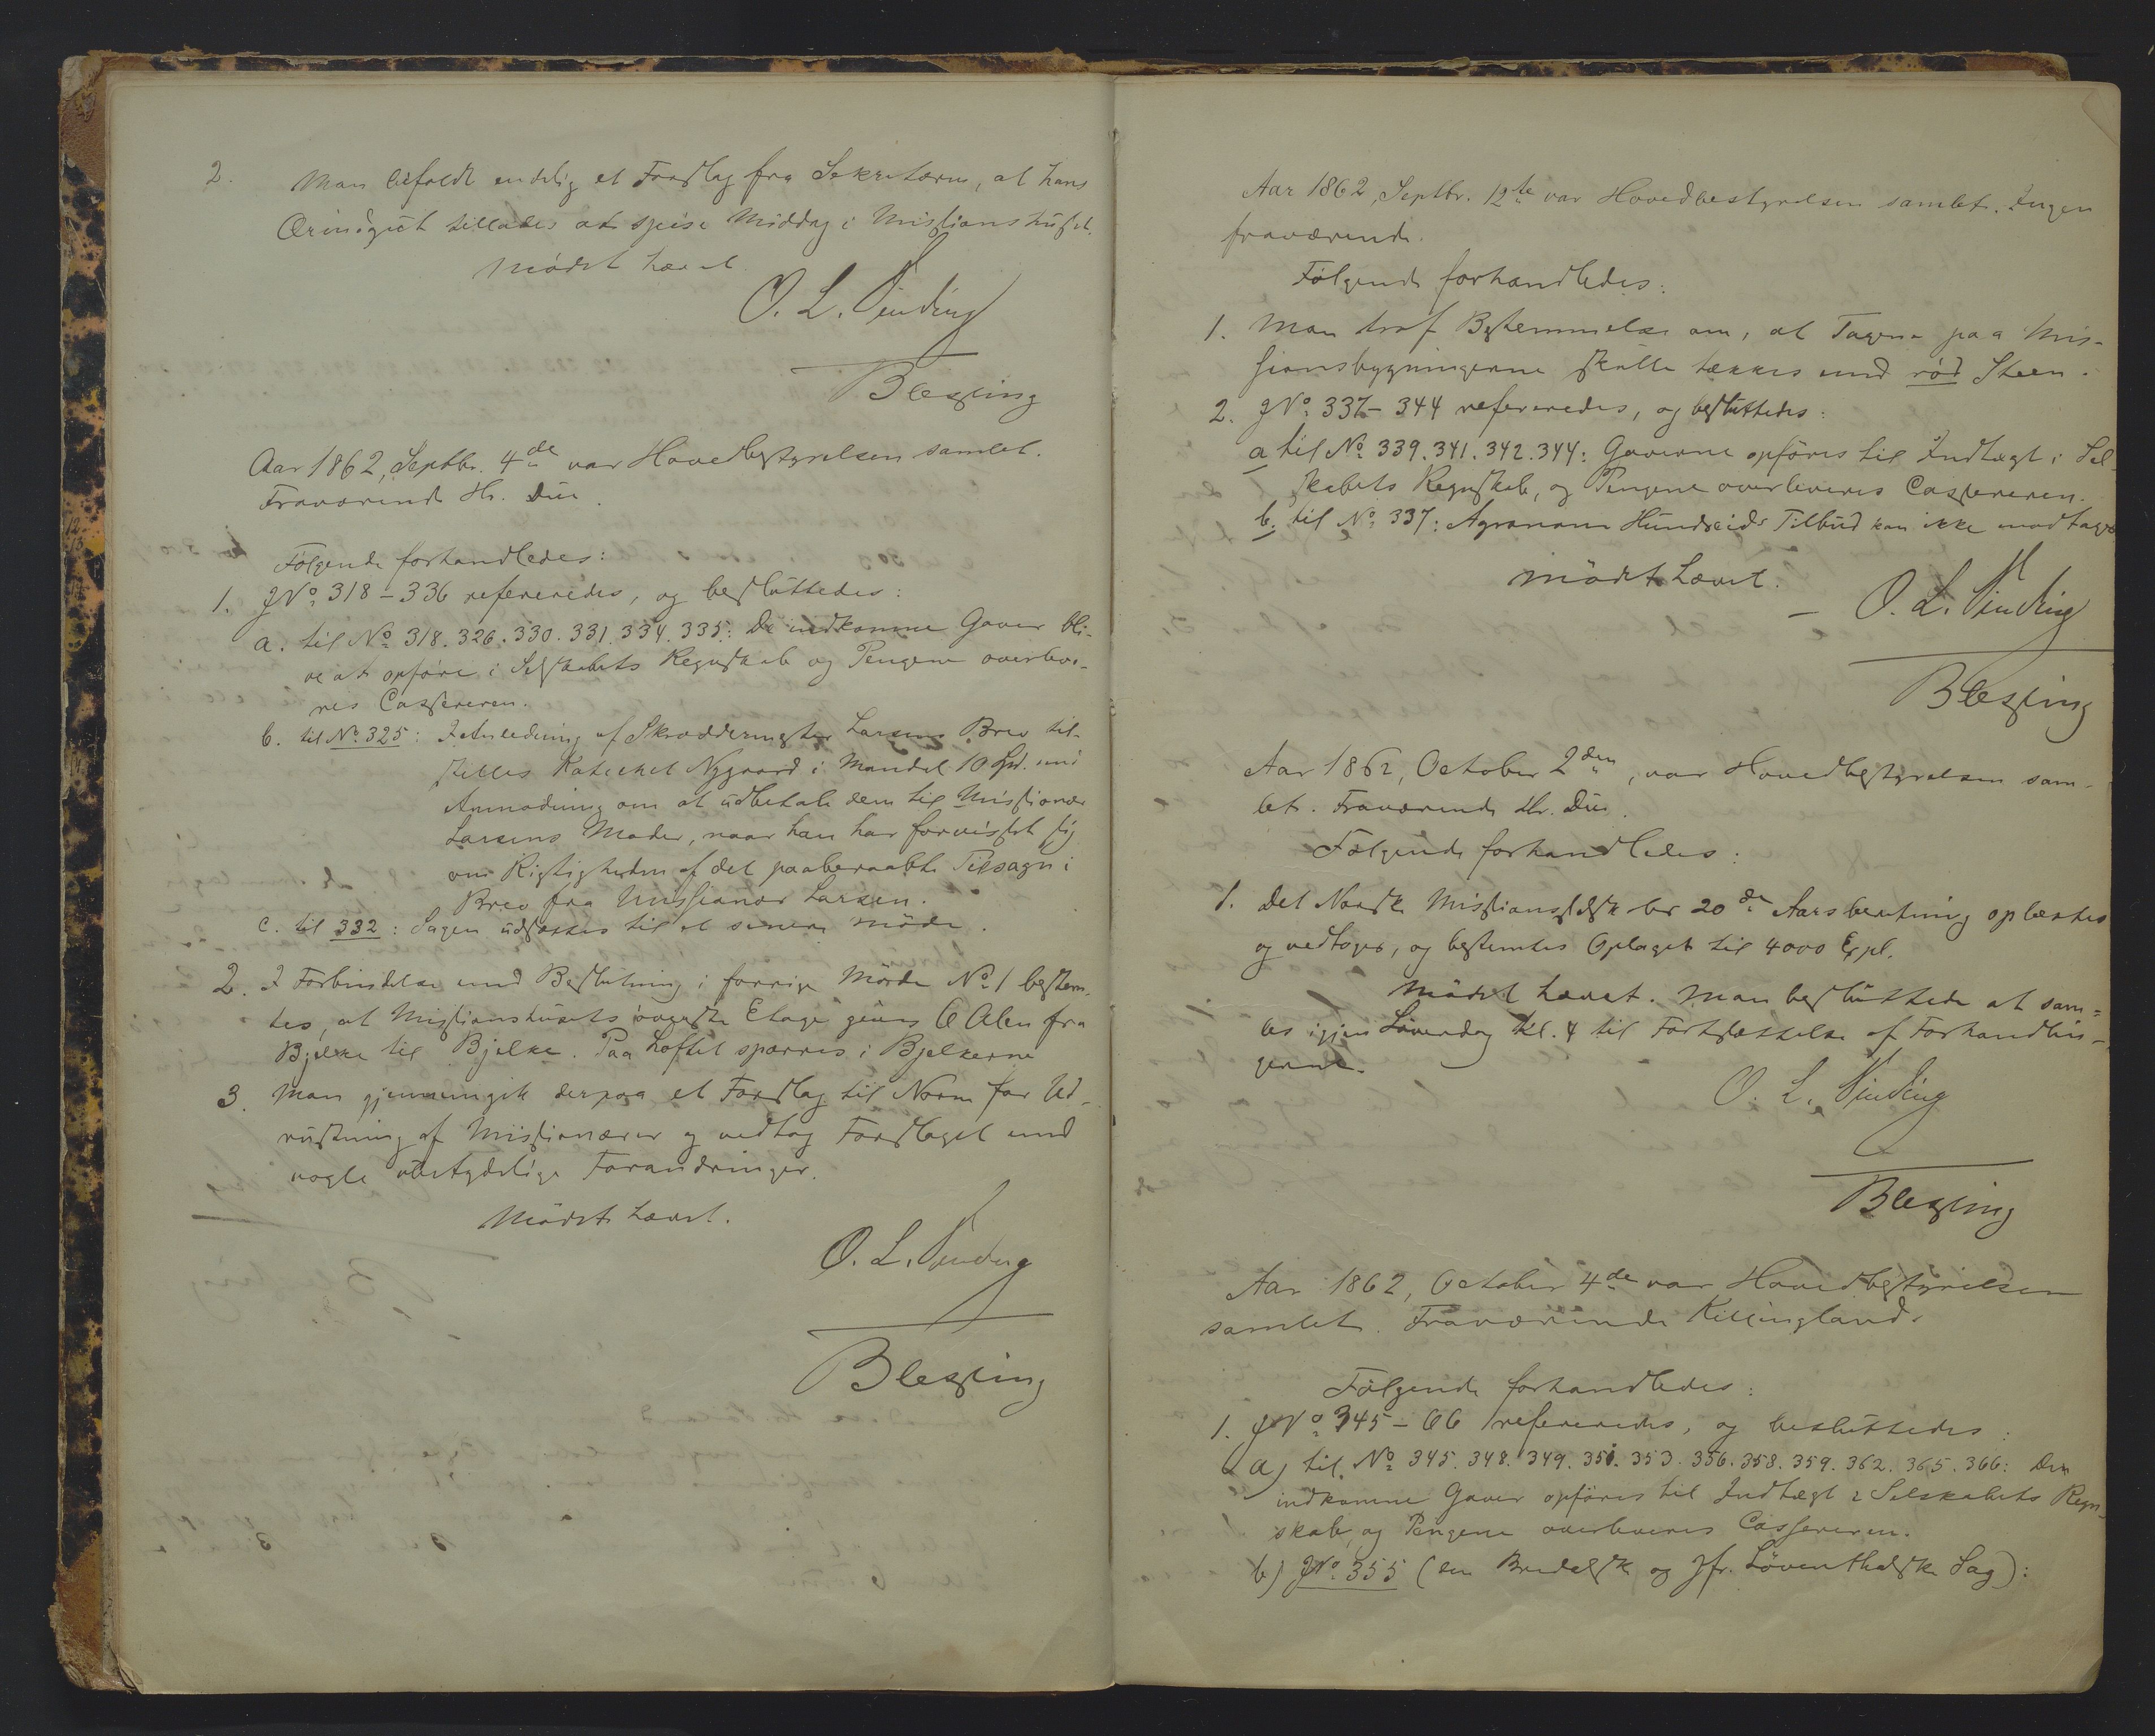 2. Man bifaldt endelig et Forslag fra Sekretæren, at hans
tillades at spise Middag i Missionshuset.
Mödet hævet
O. L. Sinding
Blessing
Aar 1862, Septbr. 4de var Hovedbestyrelsen samlet.
Fraværende Hr. Due.
Følgende forhandledes:
1. JNo. 318-336 refereredes, og besluttedes:
a. til No 318. 326. 330. 331. 334. 335: De indkomne Gaver bli-
ve at opføre i Selskabets Regnskab og Pengene overleve-
res Cassereren.
b. til No. 325: I Anledning af Skræddermester Larsens Brev til-
stilles Kateket Nygaard i Mandal 10 Spd. med
Anmodning om at udbetale dem til Missionær
Larsens Moder, naar han har forvisset sig
om Rigtigheden af det paaberaabte Tilsagn i
Brev fra Missionær Larsen.
c. til 332: Sagen udsættes til et senere Möde.
2. I Forbindelse med Beslutning i forrige Möde No 1 bestem-
tes, at Missionshusets øverste Etage gives 6 Alen fra
Bjelke til Bjelke. Paa Loftet spærres i Bjelkerne
3. Man gjennemgik derpaa et Forslag til Norm for Ud-
rustning af Missionærer og vedtog Forslaget med
nogle ubetydelige Forandringer.
Mödet hævet.
O. L. Sinding
Blessing
Aar 1862, Septbr. 12te var Hovedbestyrelsen samlet. Ingen
fraværende.
Følgende forhandledes:
1. Man traf Bestemmelse om, at Tagene paa Mis-
sionsbygningerne skulle tækkes med röd Steen.
2. JNo. 337-344 refereredes, og besluttedes:
a til No 339. 341. 342. 344: Gaverne opföres til Indtægt i Sel-
skabets Regnskab, og Pengene overleveres Cassereren.
b. til No. 337: Agronom Hundseids Tilbud kan ikke modtages
Mödet hævet.
O. L. Sinding
Blessing
Aar 1862, October 2den, var Hovedbestyrelsen sam-
let. Fraværende Hr. Due.
Følgende forhandledes:
1. Det Norske Missionsselskabs 20de Aarsberetning oplæstes
og vedtoges, og bestemtes Oplaget til 4000 Expl.
Mödet hævet. Man besluttede at sam-
les igjen Løverdag Kl. 4 til Fortsættelse af Forhandlin-
gerne.
O. L. Sinding
Blessing
Aar 1862, October 4de var Hovedbestyrelsen
samlet. Fraværende Kiellingland.
Følgende forhandledes:
1. JNo. 345-66 refereredes, og besluttedes:
a) til No 345. 348. 349. 351. 353. 356. 358. 359. 362. 365. 366: De
indkomne Gaver opföres til Indtægt i Selskabets Regn-
skab, og Pengene overleveres Cassereren.
b) JNo. 355 (den Bredalske og Jfr. Løventhalske Sag):